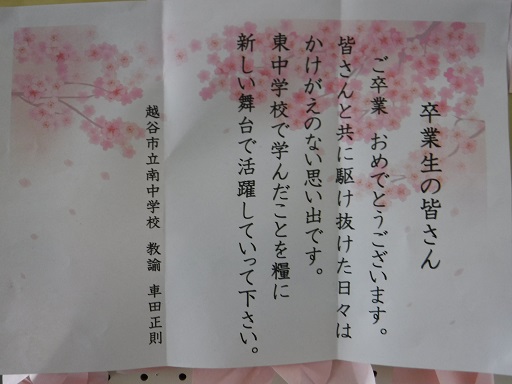 卒業生の皆さん
ご卒業　おめでとうございます。
皆さんと共に駆け抜けた日々は
かけがえのない思い出です。
東中学校で学んだことを糧に
新しい舞台で活躍していって下さい。
越谷市立南中学校　教諭　車田正則